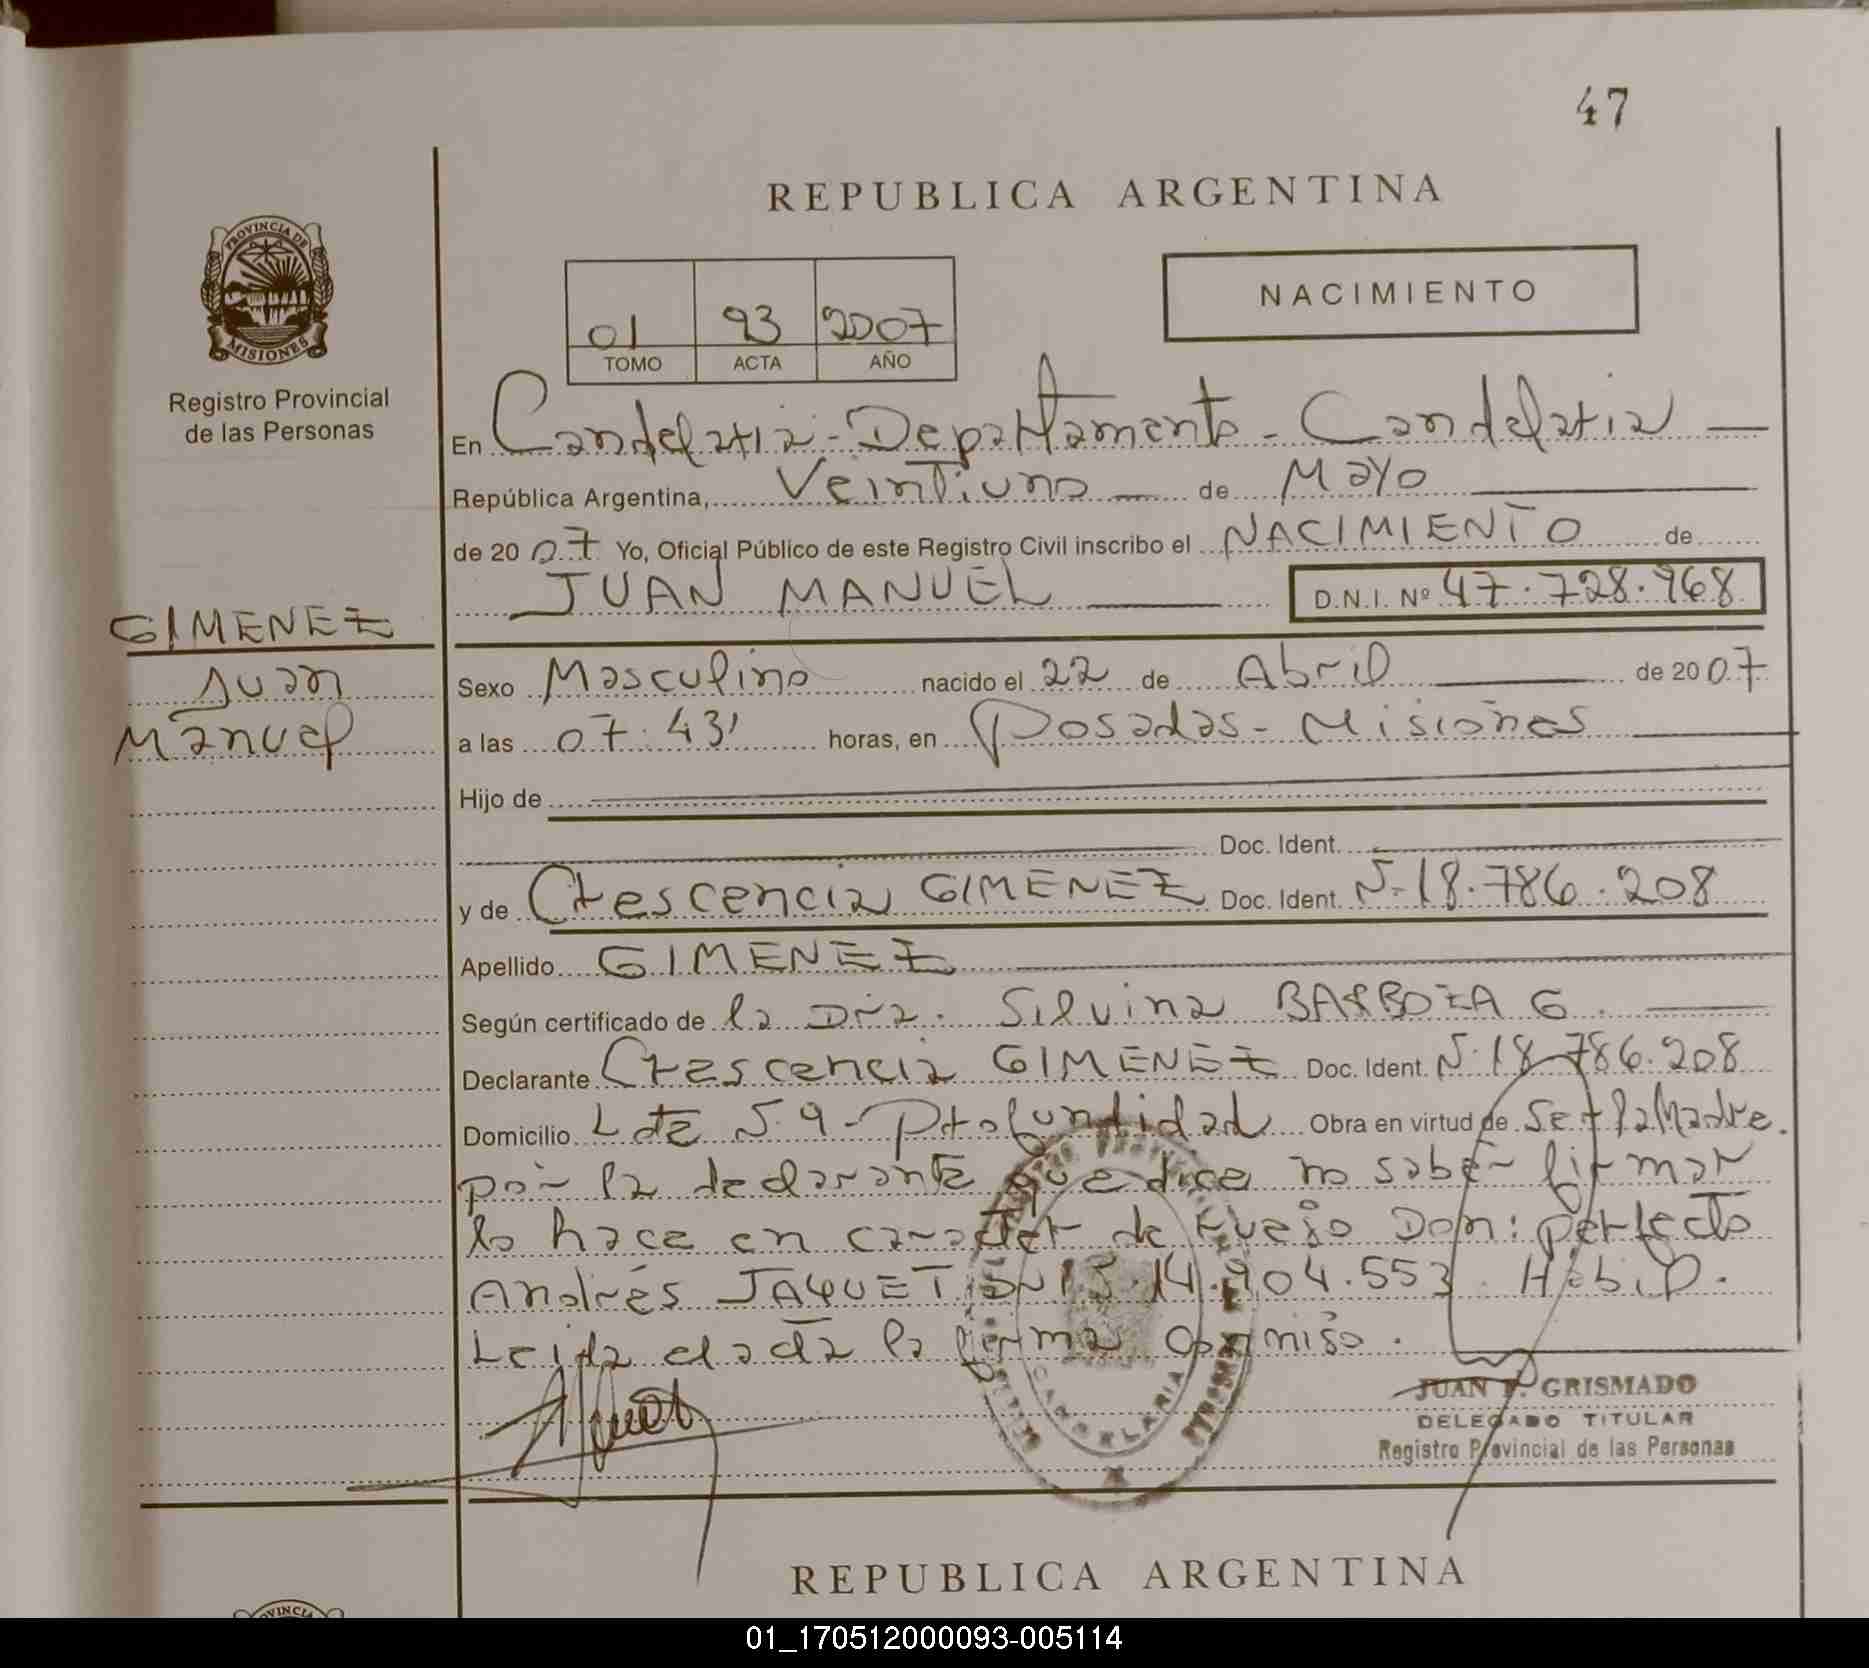 47
REPUBLICA ARGENTINA
PROVINCIA DE
MISIONES
Registro Provincial
de las Personas
01 93 2007
TOMO ACTA AÑO
NACIMIENTO
En Candelaria - Departamento - Candelaria
República Argentina, Veintiuno de Mayo
de 2007 Yo, Oficial Público de este Registro Civil inscribo el NACIMIENTO de
JUAN MANUEL D.N.I. Nº 47.728.968
GIMENEZ
Juan
Manuel
Sexo Masculino nacido el 22 de Abril de 2007
a las 07:43' horas, en Posadas - Misiones
Hijo de
Doc. Ident.
y de Crescencia GIMENEZ Doc. Ident. N° 18.786.208
Apellido GIMENEZ
Según certificado de la Dra. Silvina BARBOZA G.
Declarante Crescencia GIMENEZ Doc. Ident. N° 18.786.208
Domicilio Lote N° 9 - Profundidad Obra en virtud de Ser la Madre.
por la declarante que dice no saber firmar
lo hace en caracter de ruego Don: Perfecto
Andrés JAQUET DNI N° 14.904.553 Hábil.
Leida dada la firma conmigo.
CANDELARIA
JUAN F. GRISMADO
DELEGADO TITULAR
Registro Provincial de las Personas
REPUBLICA ARGENTINA
01_170512000093-005114